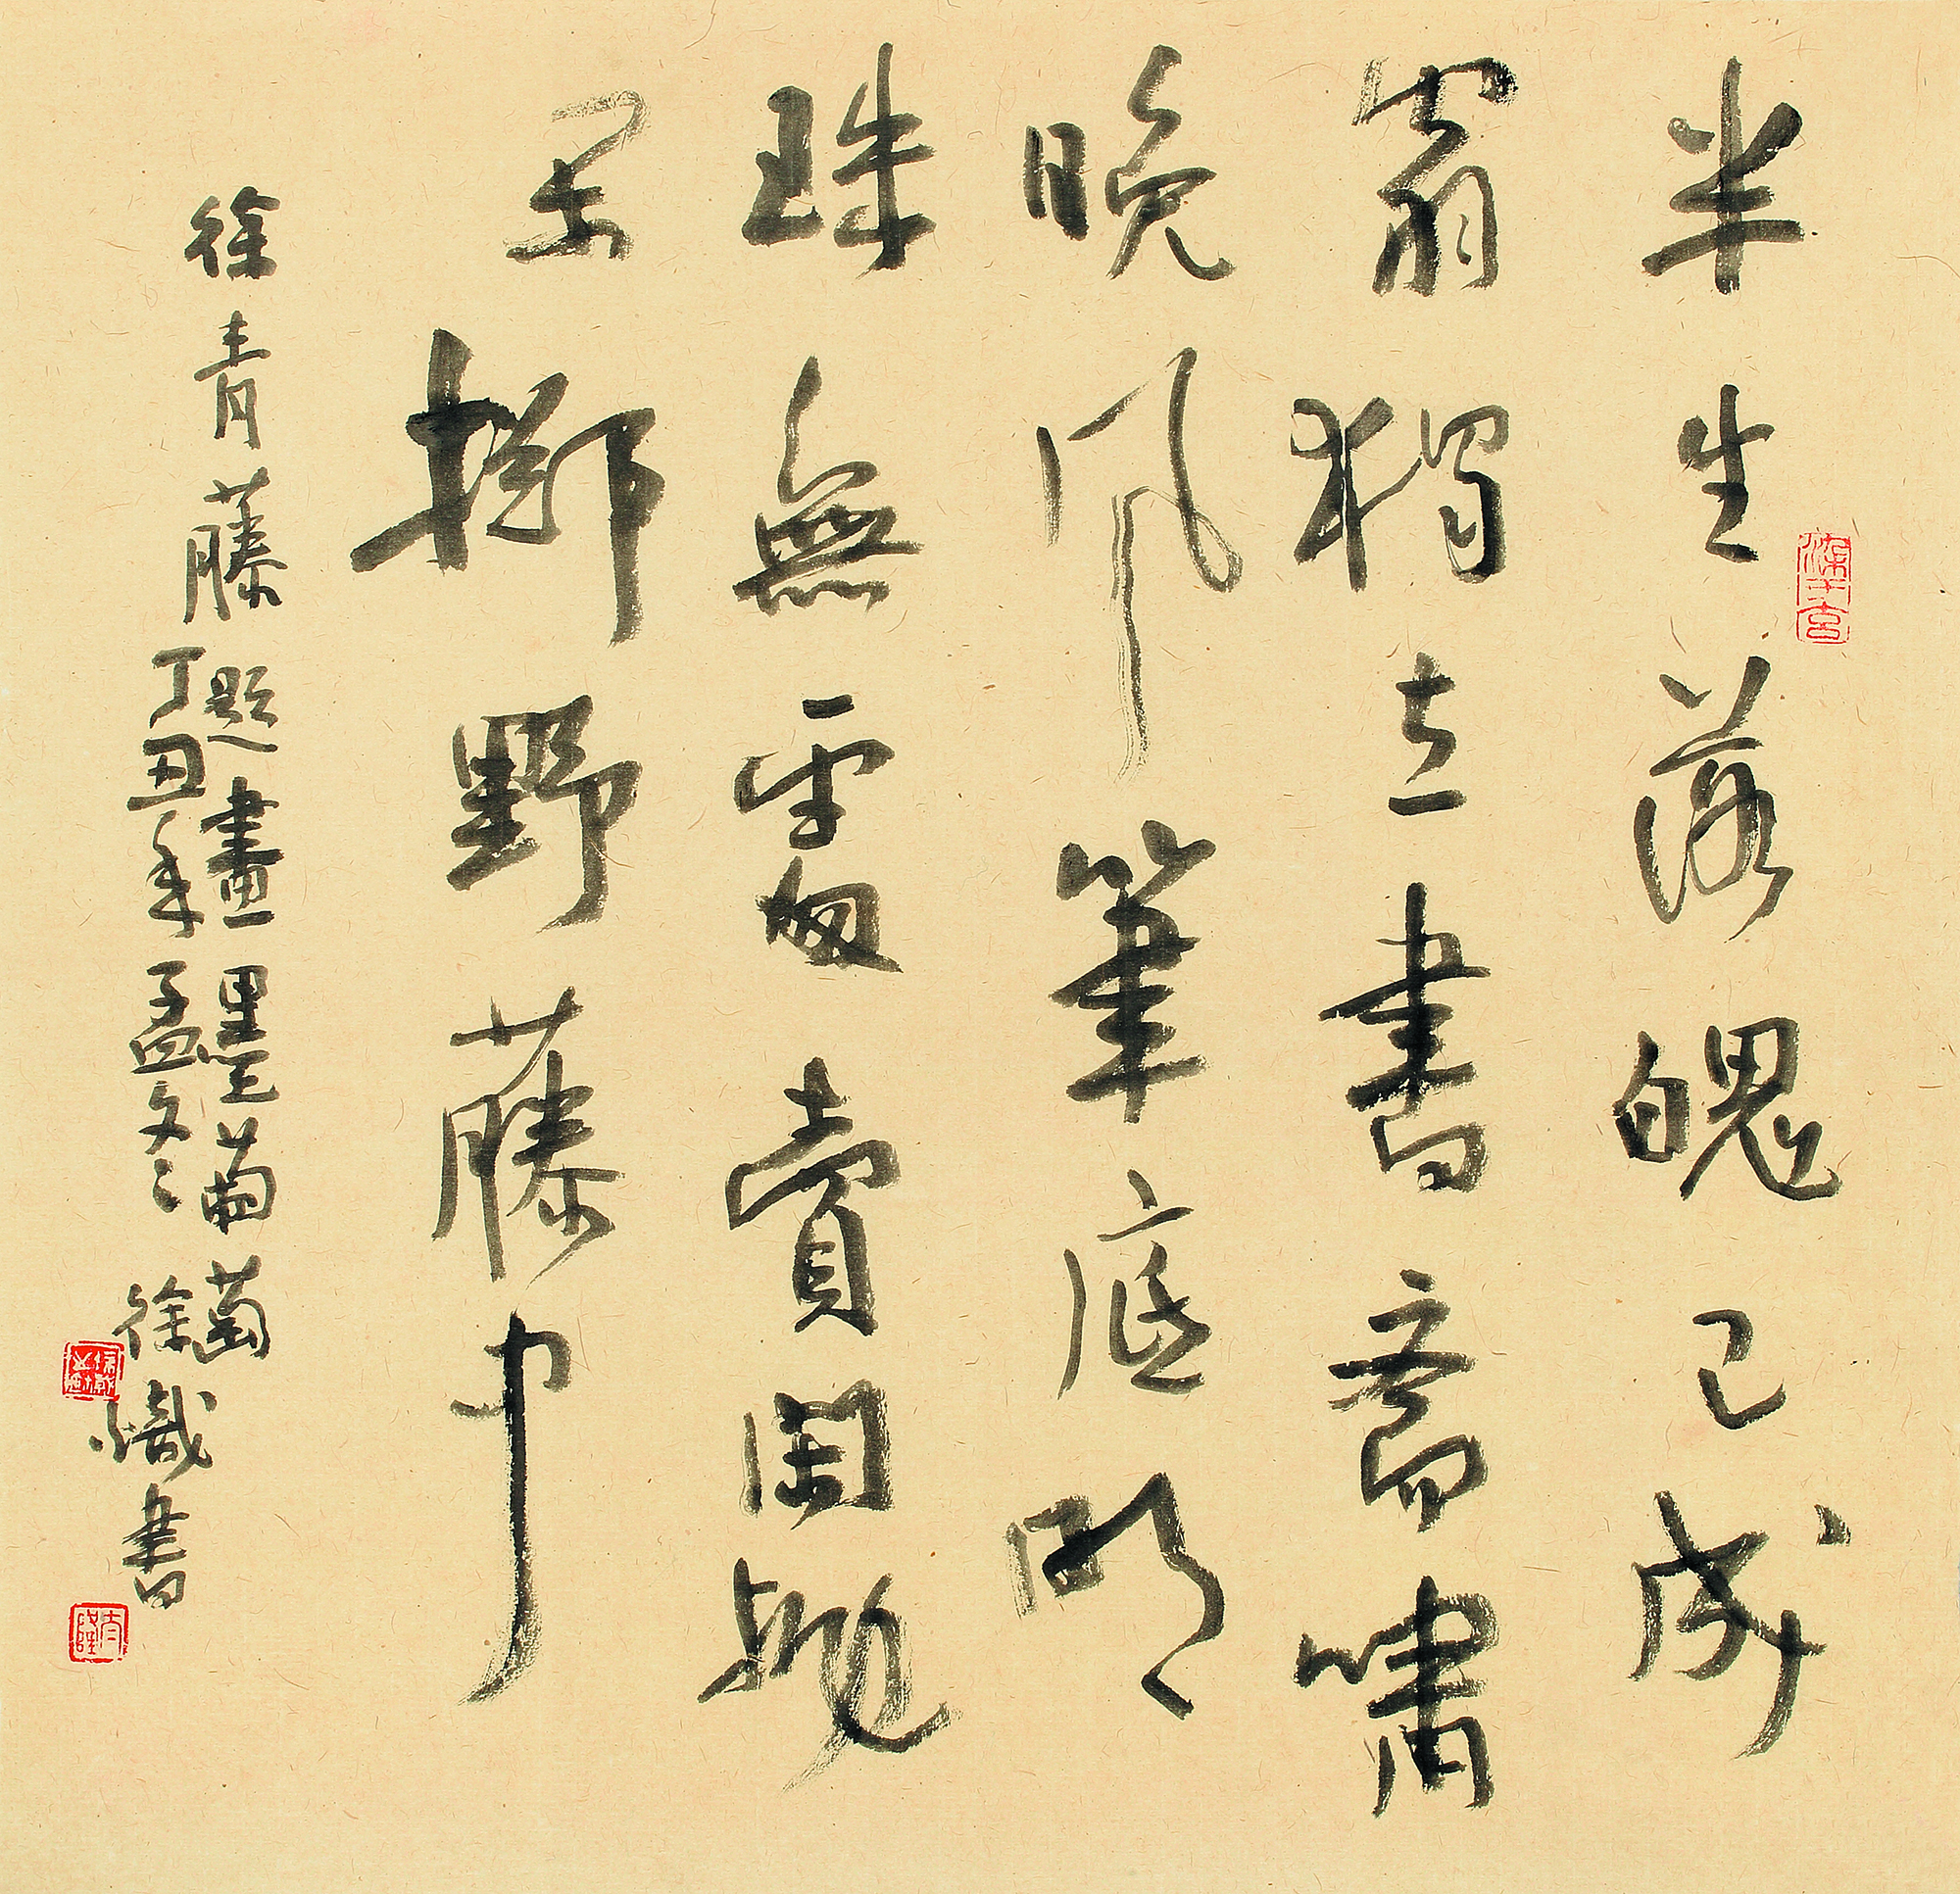 半生落魄已成
翁獨立書齋嘯
晚風筆底明
珠無處賣閑拋
閑擲野藤中
徐青藤題畫墨葡萄
丁丑年孟冬徐熾書